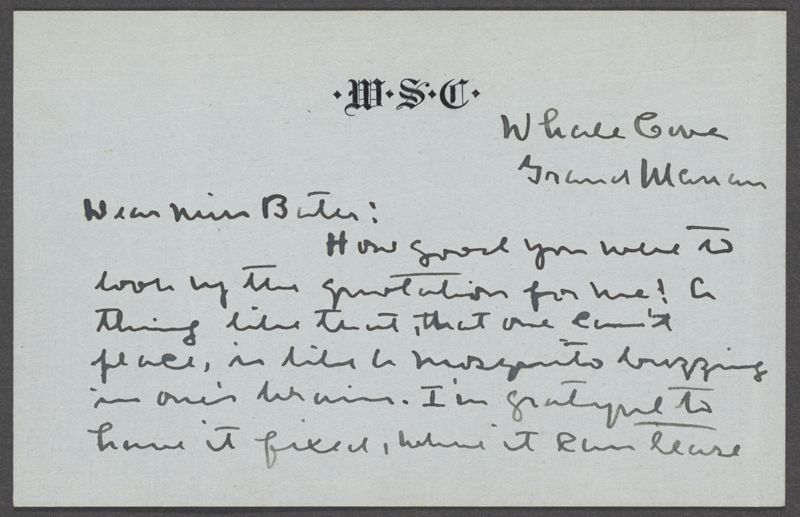 ·W·S·C·
Whale Cove
Grand Manan
Dear Miss Bates:
How good you were to
look up the quotation for me! A
thing like that, that one can't
place, is like a mosquito buzzing
in one's brain. I'm grateful to
have it fixed, where it can tease